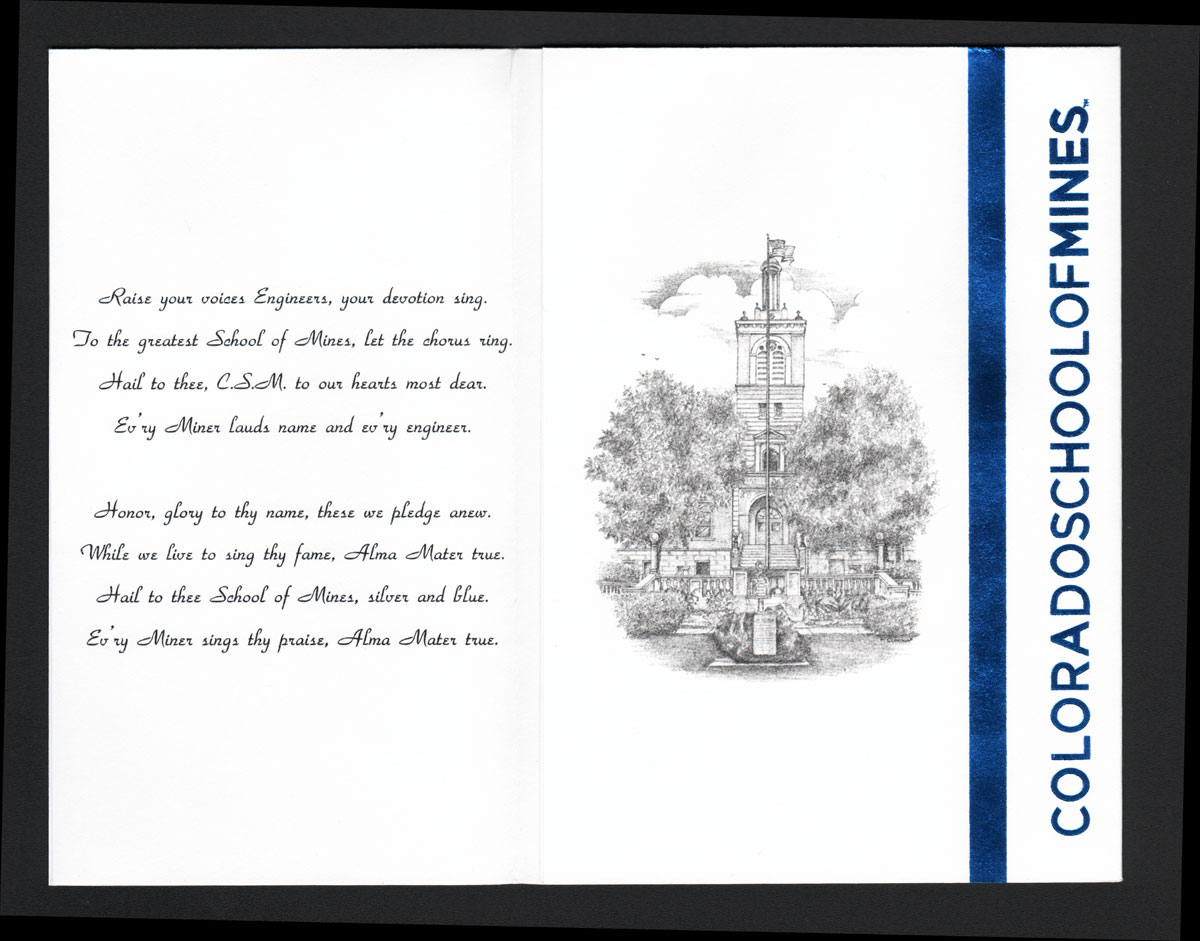 Raise your voices Engineers, your devotion sing.
To the greatest School of Mines, let the chorus ring.
Hail to thee, C.S.M. to our hearts most dear.
Ev'ry Miner lauds name and ev'ry engineer.
Honor, glory to thy name, these we pledge anew.
While we live to sing thy fame, Alma Mater true.
Hail to thee School of Mines, silver and blue.
Ev'ry Miner sings thy praise, Alma Mater true.
COLORADOSCHOOLOFMINES™